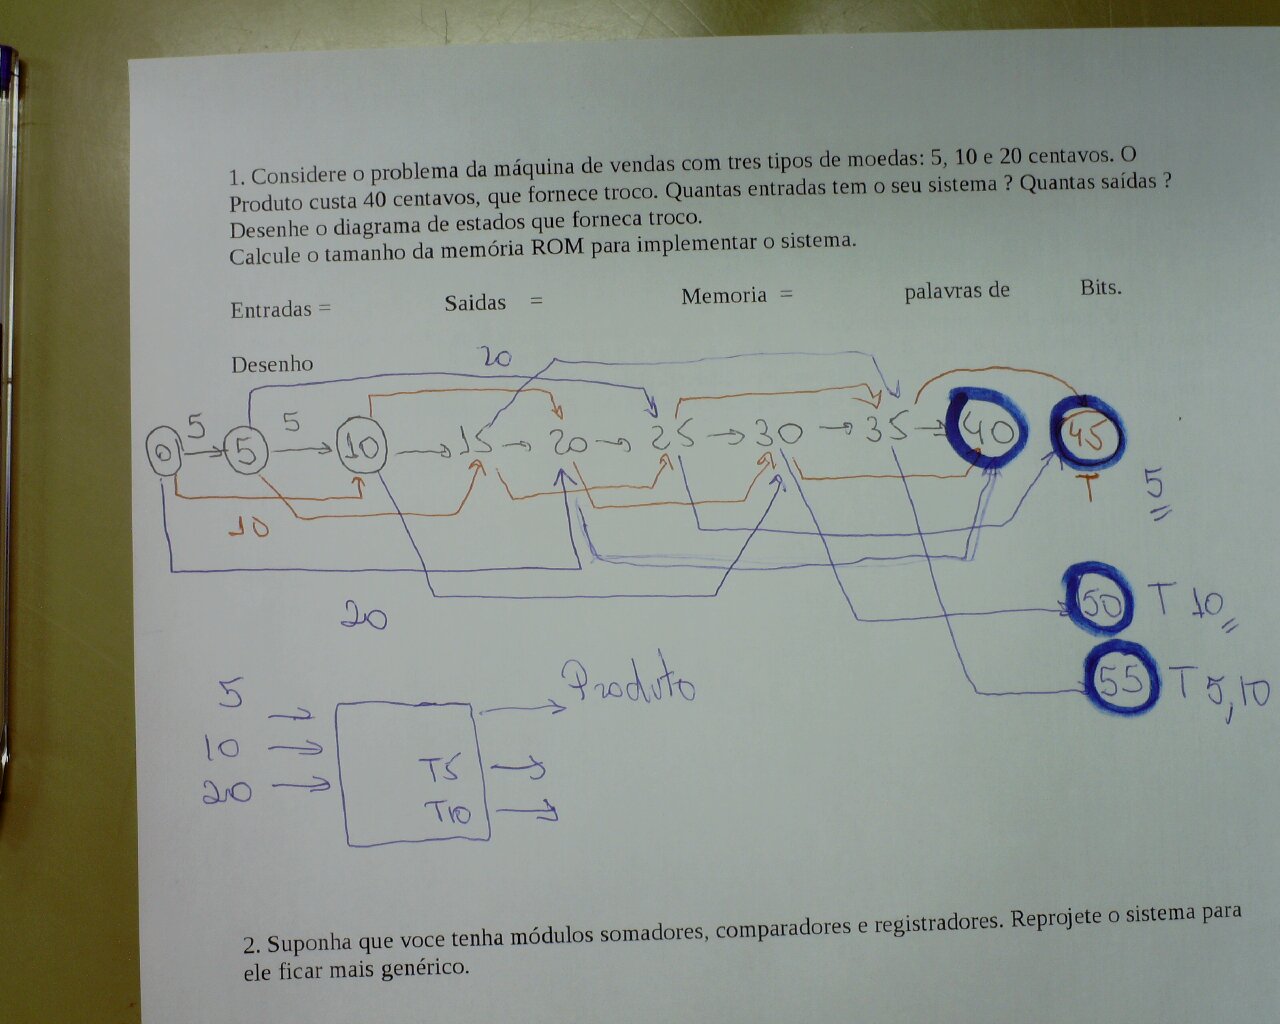 1. Considere o problema da máquina de vendas com tres tipos de moedas: 5, 10 e 20 centavos. O
Produto custa 40 centavos, que fornece troco. Quantas entradas tem o seu sistema ? Quantas saídas ?
Desenhe o diagrama de estados que forneca troco.
Calcule o tamanho da memória ROM para implementar o sistema.
Entradas = Saidas = Memoria = palavras de Bits.
Desenho
20
5 5
0 5 10 15 20 25 30 35 40 45
T 5
10
20
50 T 10
55 T 5,10
Produto
5
10
20
T5
T10
2. Suponha que voce tenha módulos somadores, comparadores e registradores. Reprojete o sistema para
ele ficar mais genérico.